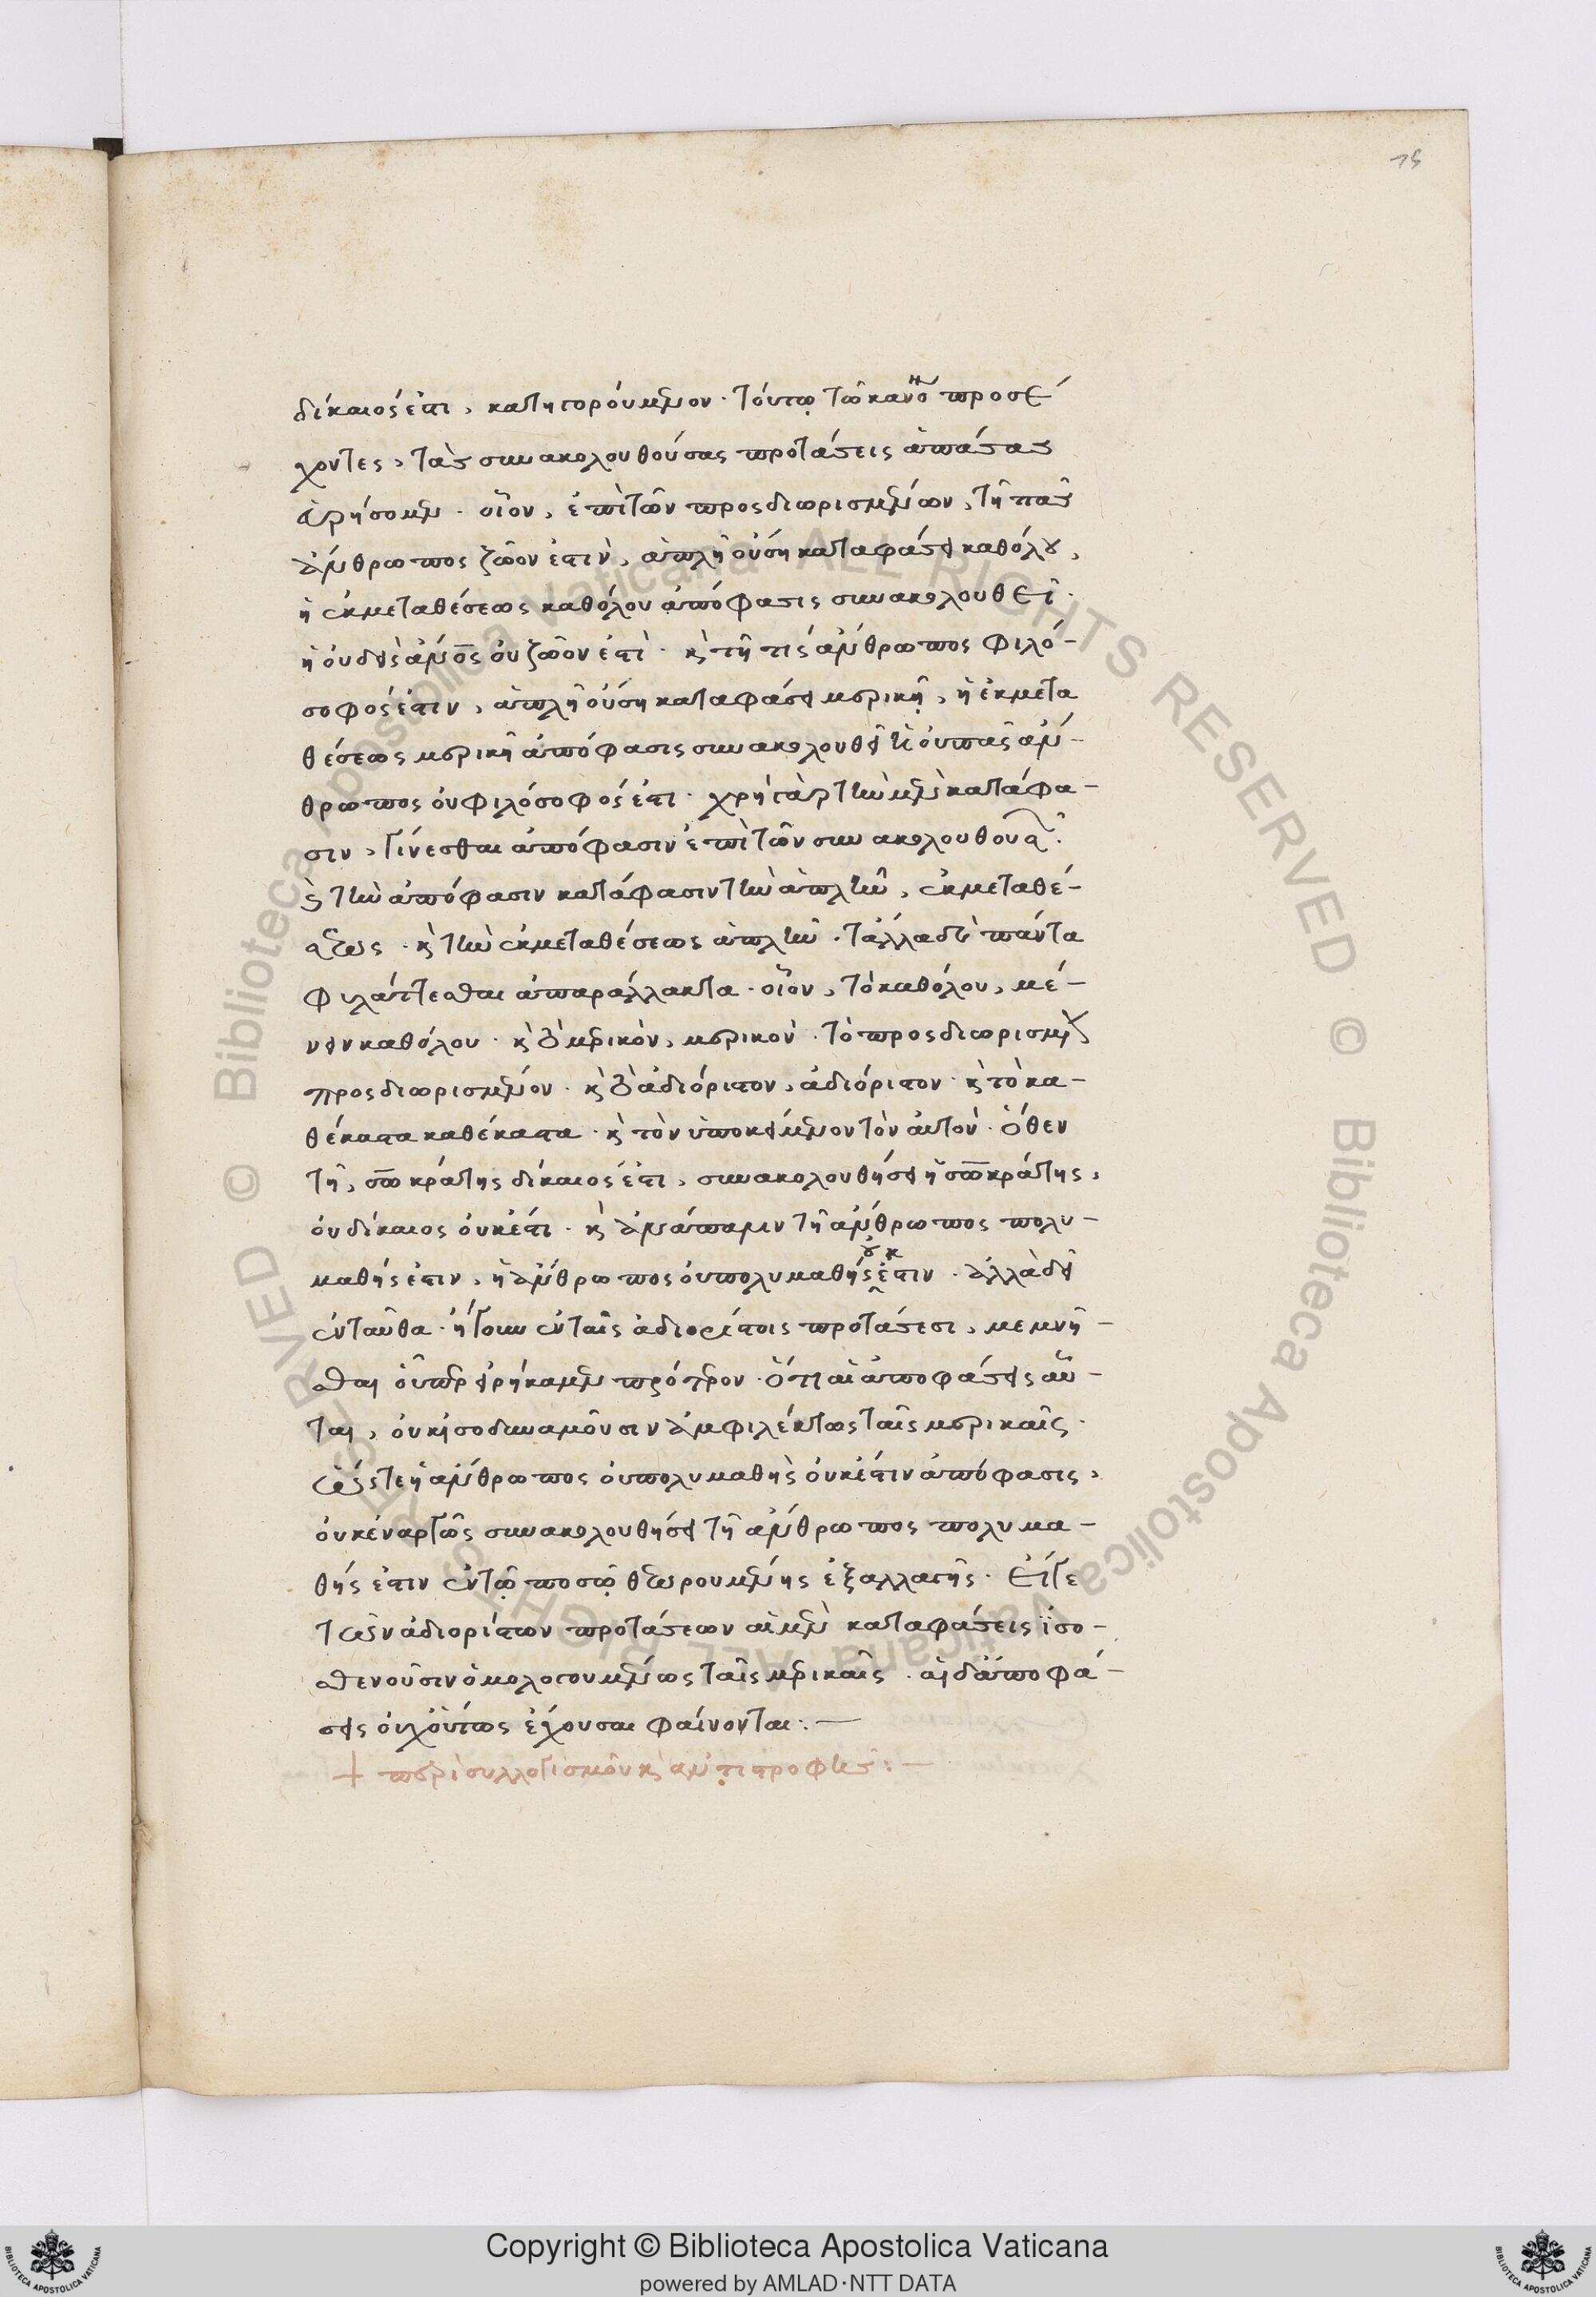 15
δίκαιός ἐστι, κατηγορούμενον. τούτῳ τῶ κανόνι προσέ-
χοντες, τὰς συνακολουθούσας προτάσεις ἁπάσας
εὑρήσομεν. οἷον, ἐπὶ τῶν προσδιωρισμένων, τῆ πᾶς
ἄνθρωπος ζῶον ἐστὶν, ἁπλῆ οὔση καταφάσει καθόλου,
ἡ ἐκ μεταθέσεως καθόλου ἀπόφασις συνακολουθεῖ.
ἡ οὐδεὶς ἄνος οὐ ζῶον ἐστὶ. καὶ τῆ τὶς ἄνθρωπος φιλό-
σοφός ἐστιν, ἁπλῆ οὔση καταφάσει μερικῆ, ἡ ἐκ μετα
θέσεως μερικὴ ἀπόφασις συνακολουθεῖ ἡ οὐ πᾶς ἄν-
θρωπος οὐ φιλόσοφός ἐστι. χρὴ γὰρ τὴν μὲν κατάφα-
σιν, γίνεσθαι ἀπόφασιν ἐπὶ τῶν συνακολουθουσῶν.
τὴν ἀπόφασιν κατάφασιν τὴν ἁπλῆν, ἐκ μεταθέ-
σεως. καὶ τὴν ἐκ μεταθέσεως ἁπλῆν. τἄλλα δὲ πάντα
φυλάττεσθαι ἀπαράλλακτα. οἷον, τὸ καθόλου, μέ-
νειν καθόλου. καὶ τὸ μερικὸν, μερικὸν. τὸ προσδιωρισμένον
προσδιωρισμένον. καὶ τὸ ἀδιόριστον, ἀδιόριστον. καὶ τὸ κα-
θέκαστα καθέκαστα. καὶ τὸν ὑποκείμενον τὸν αὐτὸν. ὅθεν
τῆ, σωκράτης δίκαιός ἐστι, συνακολουθήσει ἡ σωκράτης,
οὐ δίκαιος οὐκ ἔστι. καὶ ἀνάπαλιν τῆ ἄνθρωπος πολυ-
μαθής ἐστιν, ἡ ἄνθρωπος οὐ πολυμαθής οὐκ ἔστιν. ἀλλὰ δεῖ
ἐνταῦθα. ἤγουν ἐν ταῖς ἀδιορίστοις προτάσεσι, μεμνῆ-
σθαι οὗπερ εἰρήκαμεν πρότερον. ὅτι αἱ ἀποφάσεις αὗ-
ται, οὐκ ἰσοδυναμοῦσιν ἀμφιλέκτως ταῖς μερικαῖς.
ὥστε ἡ ἄνθρωπος οὐ πολυμαθὴς οὐκ ἔστιν ἀπόφασις,
οὐκ ἐναργῶς συνακολουθήσει τῆ ἄνθρωπος πολυμα-
θής ἐστιν ἐν τῷ ποσῷ θεωρουμένης ἐξαλλαγῆς. εἴγε
τῶν ἀδιορίστων προτάσεων αἱ μὲν καταφάσεις ἰσο-
σθενοῦσιν ὁμολογουμένως ταῖς μερικαῖς. αἱ δ' ἀποφά-
σεις οὐχ οὕτως ἔχουσαι φαίνονται:—
+ περὶ συλλογισμοῦ καὶ ἀντιστροφῆς:—